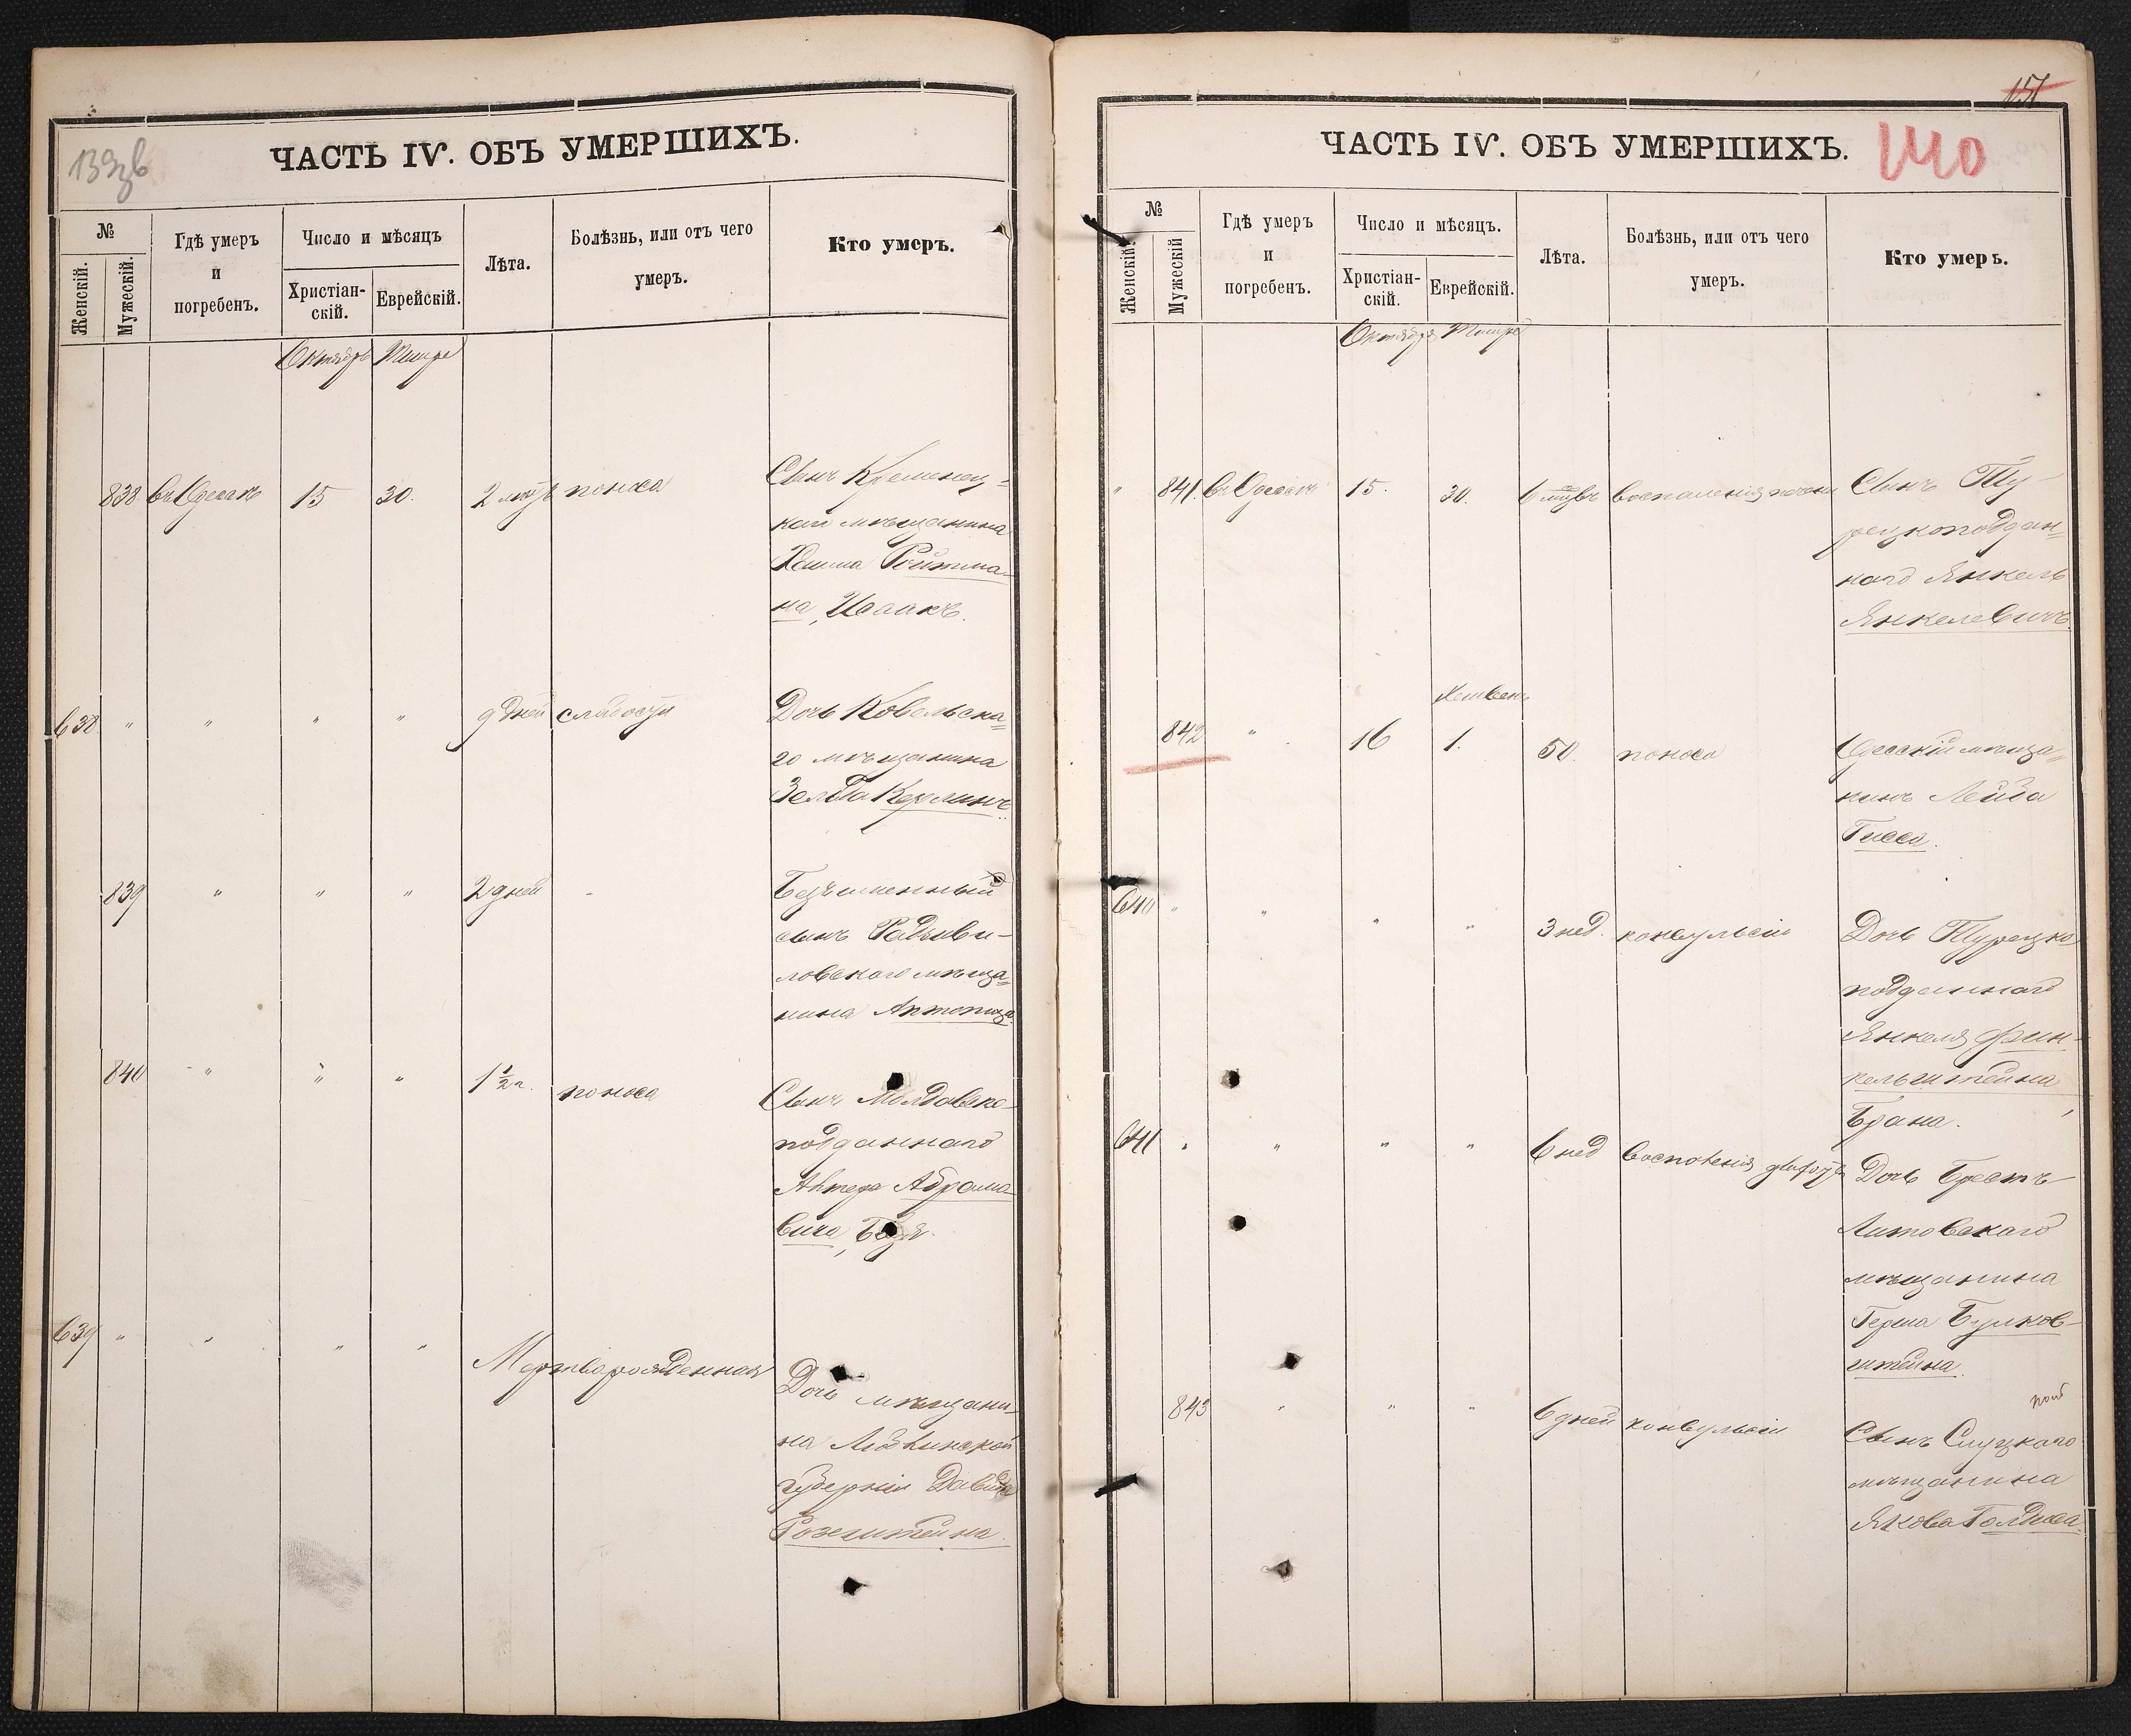 139зв
ЧАСТЬ IV. ОБЪ УМЕРШИХЪ.
№
Женскій.
Мужескій.
Гдѣ умеръ
и
погребенъ.
Число и мѣсяцъ
Христіан-
скій.
Еврейскій.
Лѣта.
Болѣзнь, или отъ чего
умеръ.
Кто умеръ.
Октябрь Тишре
838 въ Одессѣ 15 30. 2 поноса Сынъ Кременец-
каго мѣщанина
Хаима Ройтма-
на, Исаакъ.
638 " " " " 9 дней слабости Дочь Ковельска-
го мѣщанина
Зельда Керлинъ
839 " " " 2 дней - Безъименный
сынъ Радзиви-
ловскаго мѣща-
нина
840 " " " 1½ г. поноса Сынъ Молдавско-
подданнаго
Абрамо-
вича,
639 " " " " Мертворожденная Дочь мѣщани-
на
губерніи Давида
Розенштейна.
151
ЧАСТЬ IV. ОБЪ УМЕРШИХЪ.
140
№
Женскій.
Мужескій
Гдѣ умеръ
и
погребенъ.
Число и мѣсяцъ.
Христіан-
скій.
Еврейскій.
Лѣта.
Болѣзнь, или отъ чего
умеръ.
Кто умеръ.
Октября Тишре
" 841. въ Одессѣ 15. 30. 6 воспаленія Сынъ Ту-
рецкоподдан-
наго Янкель
Янкелевичъ
Хешвень
842 " 16 1. 50. поноса Одесскій мѣща-
нинъ Лейба
Гисса.
640 " " " " 3 нед. конвульсіи Дочь Турецко
подданнаго
Янкеля Фин-
кельштейна,
Брана.
641 " " " " 6 нед Дочь Брестъ
Литовскаго
мѣщанина
Герша
штейна.
843 " " " 6 дней конвульсіи Сынъ Слуцкаго
мѣщанина
Якова